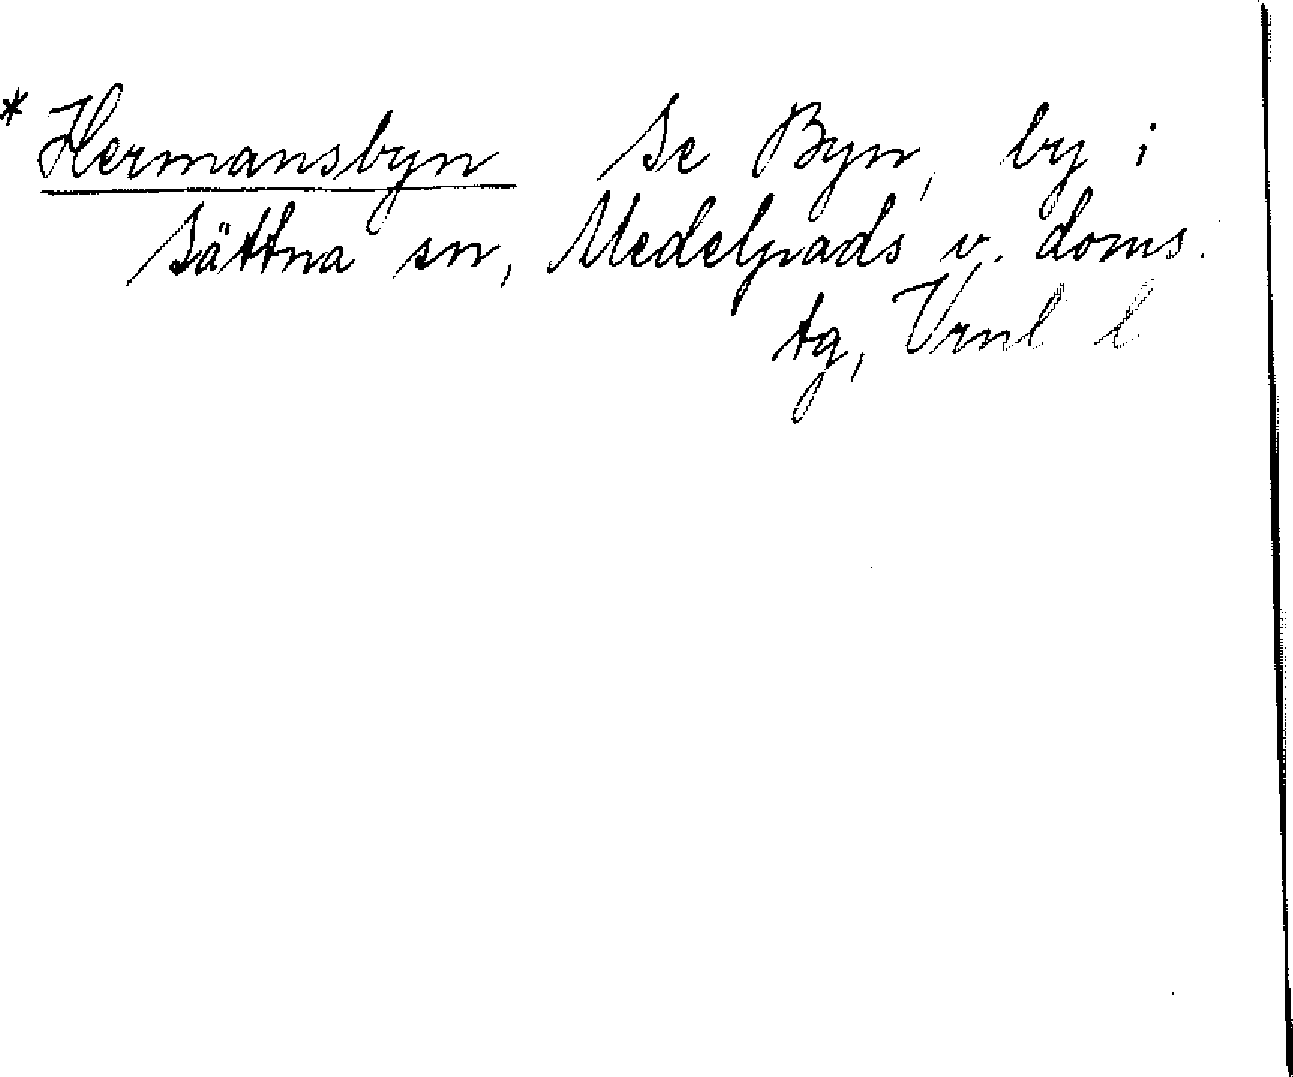 * Hermansbyn Se Byn, by i
Sättna sn, Medelpads v. doms.
tg, Vrnl l